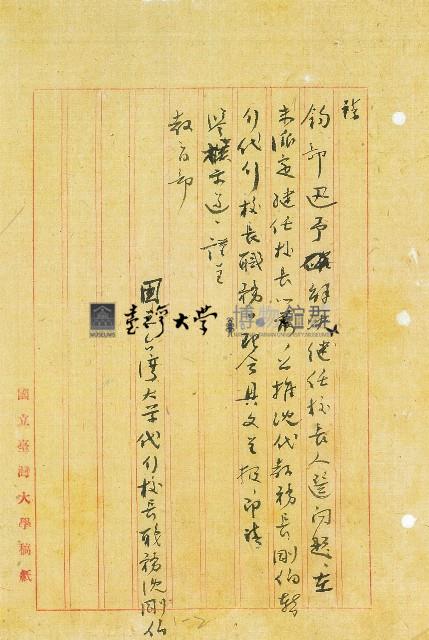 請
鈞部迅予解決繼任校長人選問題，在
未派定繼任校長以前，公推沈代教務長剛伯暫
行代行校長職務，理合具文呈報，即請
鑒核示遵，謹呈
教育部
國立台灣大學代行校長職務沈剛伯
國立臺灣大學稿紙
臺灣大學
博物館群
MUSEUMS
1-2